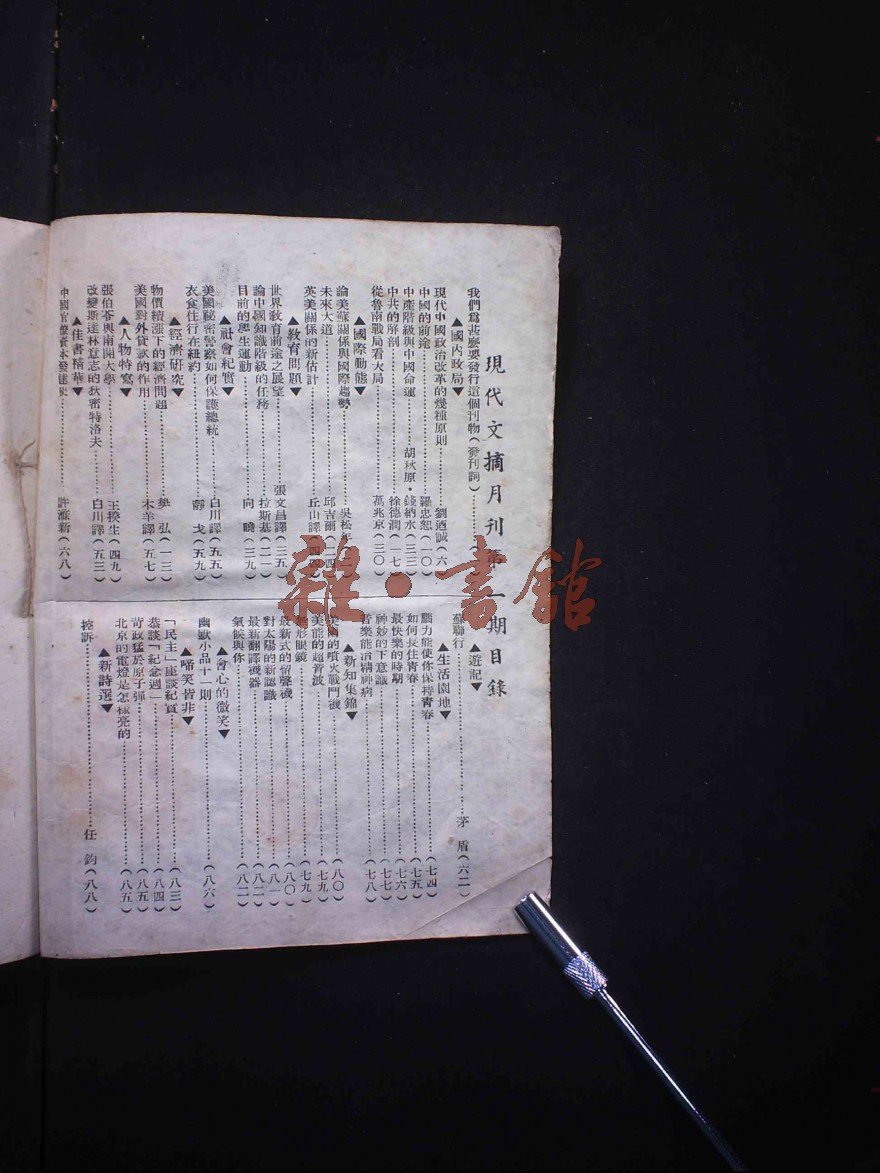 現代文摘月刊第一期目錄
我們為甚麼要發行這個刊物(發刊詞)
▲國內政局▼
現代中國政治改革的幾種原則 劉迺誠(六)
中國的前途 羅忠恕(一〇)
中產階級與中國命運 胡秋原・錢納水(三三)
中共的解剖 徐德潤(一七)
從魯南戰局看大局 萬兆京(三〇)
▲國際動態▼
論美蘇關係與國際趨勢 吳松年
未來大道 邱吉爾(二四)
英美關係的新估計 丘山譯(四四)
▲教育問題▼
世界教育前途之展望 張文昌譯(三五)
論中國知識階級的任務 拉斯基(二一)
目前的學生運動 向曉(三九)
▲社會紀實▼
美國秘密警察如何保護總統 白川譯(五五)
衣食住行在紐約 靜戈(五九)
▲經濟研究▼
物價續漲下的經濟問題 弘(一三)
美國對外貸款的作用 木羊譯(五七)
▲人物特寫▼
張伯苓與南開大學 王揆生(四九)
改變斯達林意志的狄密特洛夫 白川譯(五三)
▲佳書精華▼
中國官僚資本發達史 許滌新(六八)
▲遊記▼
蘇聯行 茅盾(六二)
▲生活園地▼
腦力能使你保持青春(七四)
如何長住青春(七五)
最快樂的時期(七六)
神妙的下意識(七七)
音樂能治精神病(七八)
▲新知集錦▼
美國的噴火戰鬥機(八〇)
美能的超音波(七九)
無形眼鏡(七九)
最新式的留聲機(八〇)
對太陽的新認識(八一)
最新翻譯機器(八二)
氣候與你(八二)
▲會心的微笑▼
幽默小品十一則(八六)
▲啼笑皆非▼
「民主」座談紀實(八三)
恭談「紀念週」(八四)
苛政猛於原子彈(八五)
北京的電燈是怎樣亮的(八五)
▲新詩選▼
控訴 任鈞(八八)
雜・書館